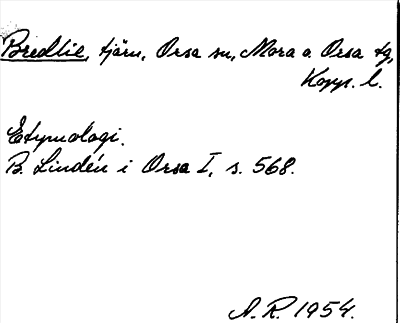 Bredtie, tjärn, Orsa sn, Mora o. Orsa tg,
Kopp. l.
Etymologi.
B. Lindén i Orsa I, s. 568.
A. R. 1954.